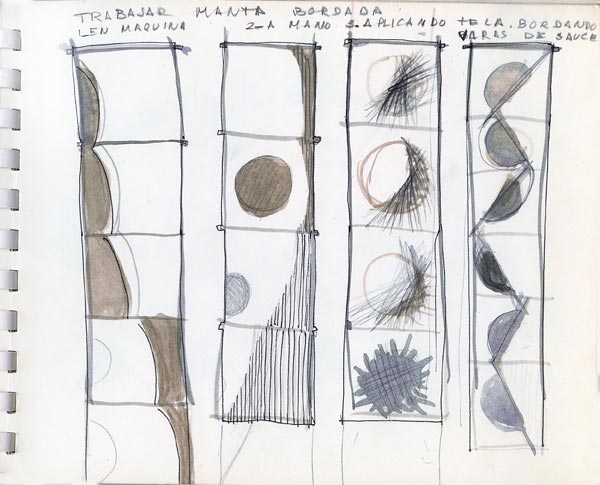 TRABAJAR MANTA BORDADA
1EN MAQUINA 2-A MANO 3-APLICANDO TELA. BORDANDO
VARAS DE SAUCE